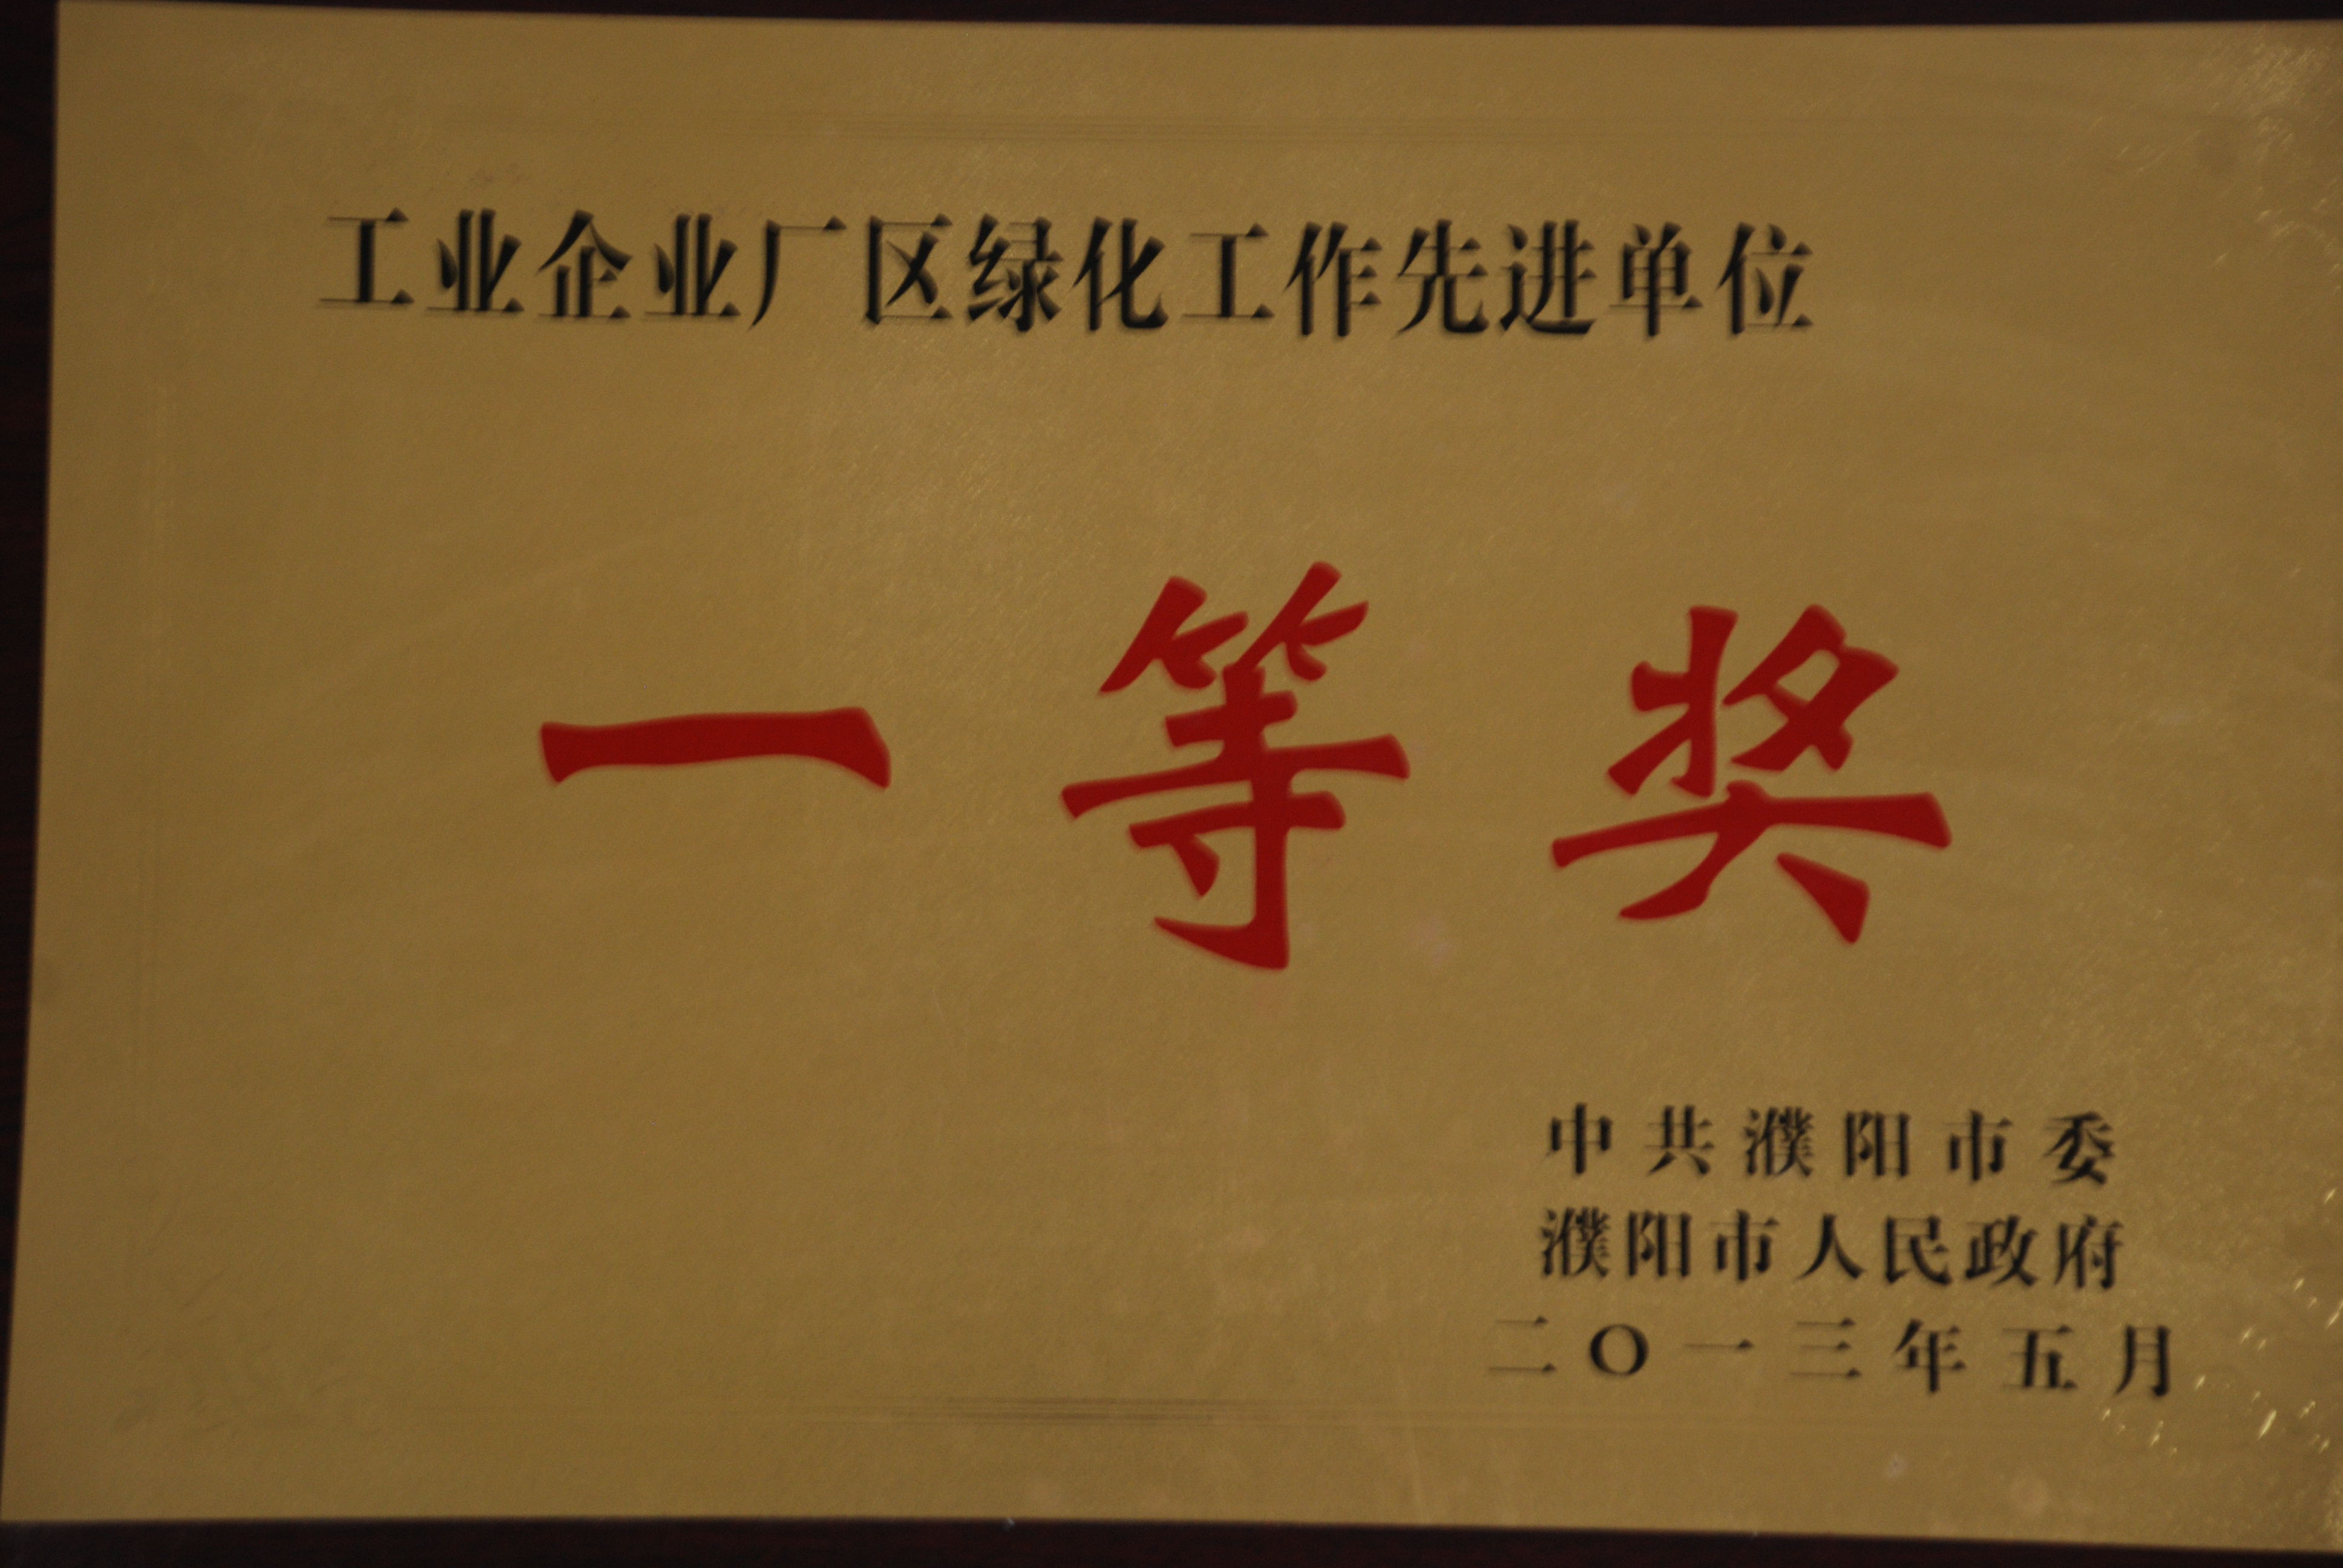 工业企业厂区绿化工作先进单位
一等奖
中共濮阳市委
濮阳市人民政府
二〇一三年五月